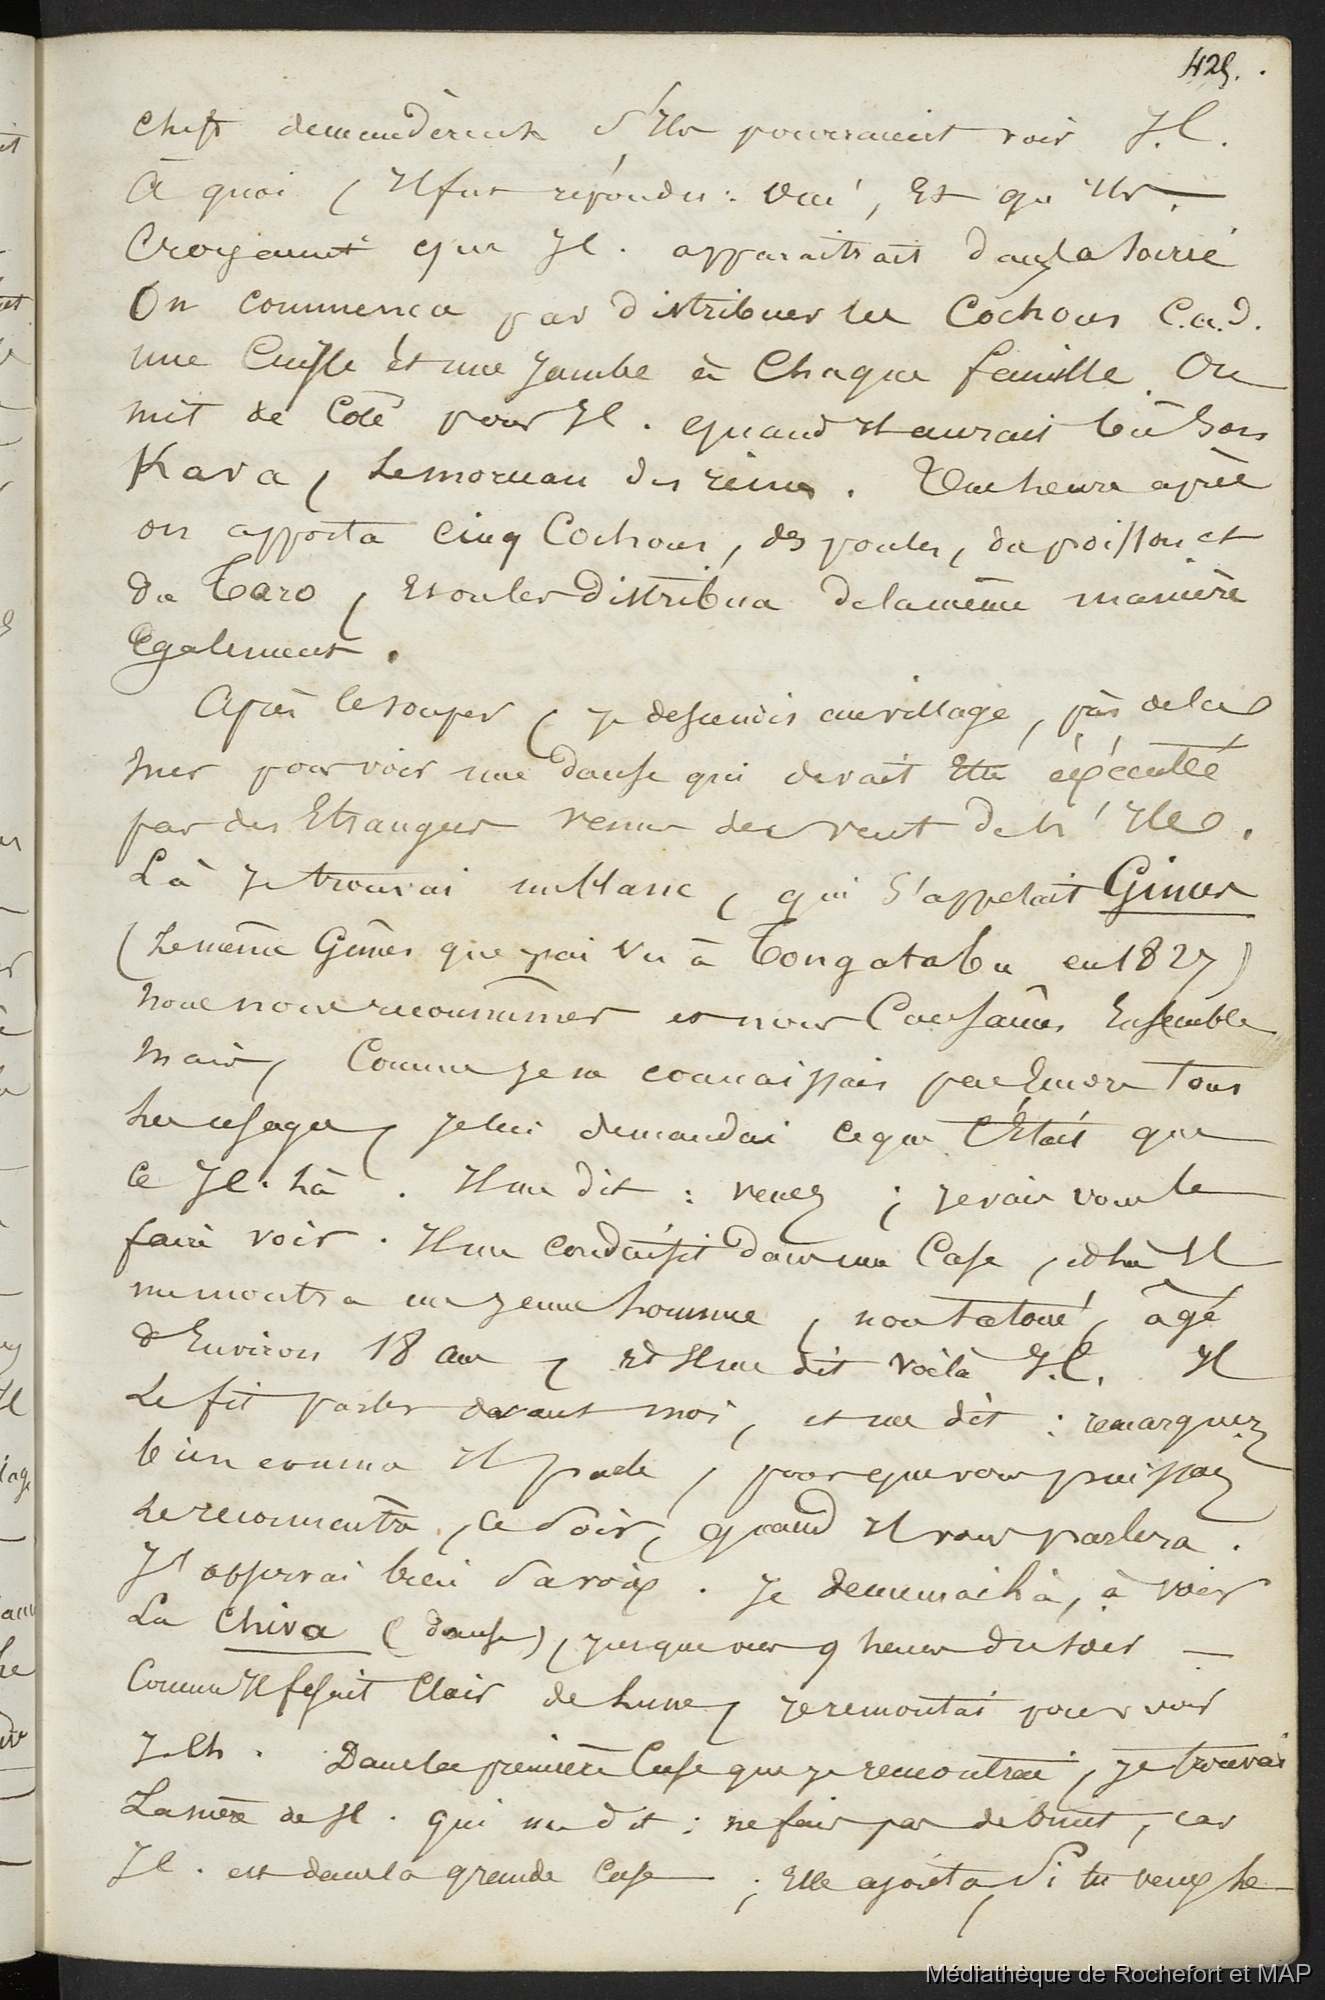 425.
chefs demandèrent s'Ils pourraient voir J.l.
À quoi, Il fut répondu : oui, Et qu'Ils
Croyaient que Jl. apparaitrait dans la soirée
On commença par distribuer les Cochons C.a.d.
une Cuisse et une Jambe à Chaque famille. On
mit de Coté pour Jl. quand Il aurait bû son
Kava, le morceau des reins. Une heure après
on apporta cinq Cochons, des poules, du poisson et
du Taro, Et on les distribua de la même manière
Egalement.
Après le souper, je descendis au village, près de la
mer pour voir une danse qui devait Etre éxécuttée
par des Etrangers venus de vent de l'Ile.
Là je trouvai un blanc, qui s'appelait Gimes
(le même Gimes que j'ai vu à Tongatabu en 1827)
nous nous reconnûmes et nous Causâmes Ensemble
mais, Comme je ne connaissais pas Encore tous
les usages, je lui demandai ce que C'Etait que
ce Jl. là. Il me dit : venez ; je vais vous le
faire voir. Il me conduisit dans une Case, et là Il
me montra un jeune homme, non tatoué, âgé
d'Environ 18 ans, et Il me dit voilà J.l. Il
le fit parler devant moi, et me dit : remarquez
bien comme Il parle, pour que vous puissiez
le reconnaitre, ce soir, quand Il vous parlera.
J'observai bien sa voix. Je demeurai là, à voir
la Chiva (danse), jusque vers 9 heures du soir
Comme Il fesait Clair de lune, je remontai pour voir
J.lh. Dans la première Case que je rencontrai, je trouvai
La mère de Jl. qui me dit : ne fais pas de bruit, car
Jl. est dans la grande Case ; Elle ajouta, si tu veux le
Médiathèque de Rochefort et MAP